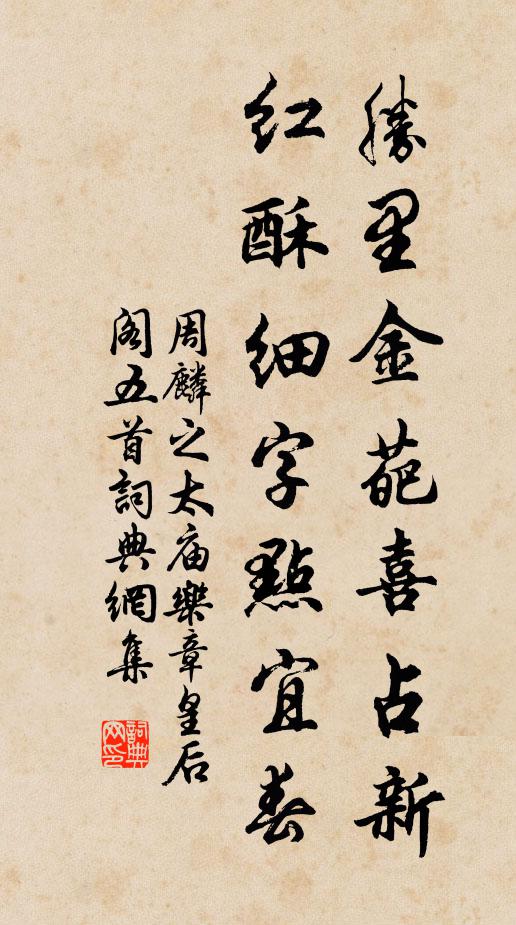 勝里金葩喜占新
紅酥細字點宜春
周麟之太庙樂章皇后
阁五首詞典網集
詞典
网印